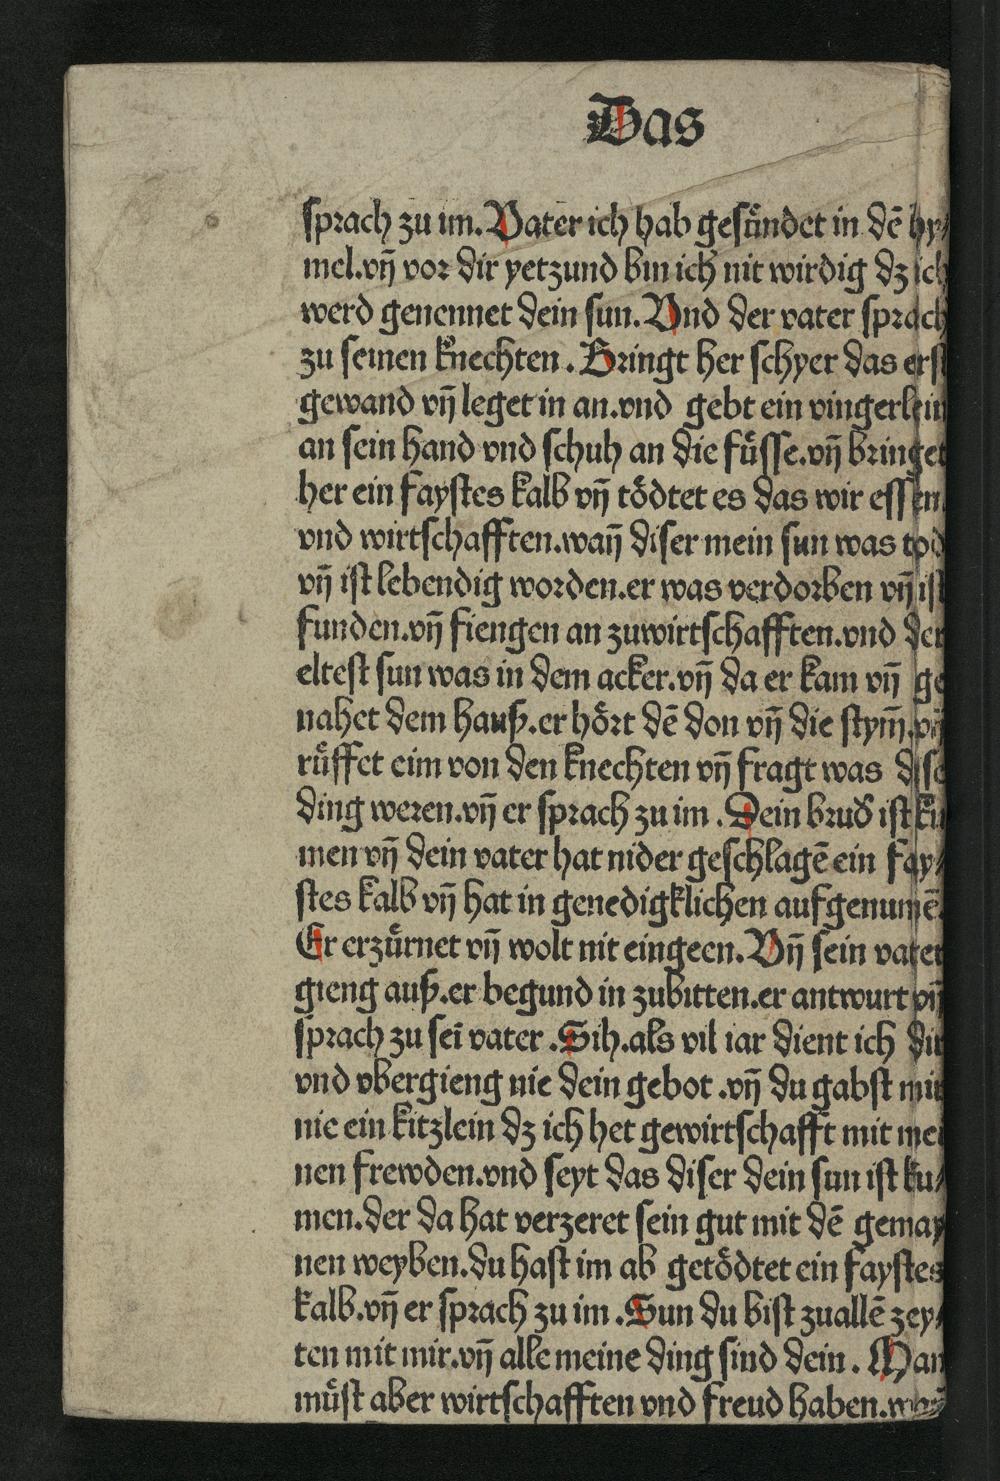 Das
sprach zu im. Vater ich hab gesündet in dē hy⸗
mel.vñ vor dir yetzund bin ich nit wirdig dz ich
werd genennet dein sun. Vnd der vater sprach
zu seinen knechten. Bringt her schyer das erst
gewand vñ leget in an.vnd gebt ein vingerlein
an sein hand vnd schuh an die füsse.vñ bringet
her ein faystes kalb vñ tödtet es das wir essen.
vnd wirtschafften.wañ diser mein sun was tod
vñ ist lebendig worden.er was verdorben vñ ist
funden.vñ fiengen an zuwirtschafften.vnd der
eltest sun was in dem acker.vñ da er kam vñ ge
nahet dem hauß.er hört dē don vñ die stym̄.vñ
rüffet eim von den knechten vñ fragt was dise
ding weren.vñ er sprach zu im. Dein brud̕ ist ku
men vñ dein vater hat nider geschlagē ein fay⸗
stes kalb vñ hat in genedigklichen aufgenumē.
Er erzürnet vñ wolt nit eingeen. Vñ sein vater
gieng auß.er begund in zubitten.er antwurt vñ
sprach zu sei᷑ vater. Sih.als vil iar dient ich dir
vnd vbergieng nie dein gebot.vñ du gabst mir
nie ein kitzlein dz ich het gewirtschafft mit mei
nen frewden.vnd seyt das diser dein sun ist ku⸗
men.der da hat verzeret sein gut mit dē gemay
nen weyben.du hast im ab getödtet ein faystes
kalb.vñ er sprach zu im. Sun du bist zuallē zey⸗
ten mit mir.vñ alle meine ding sind dein. Man
müst aber wirtschafften vnd freud haben.wañ